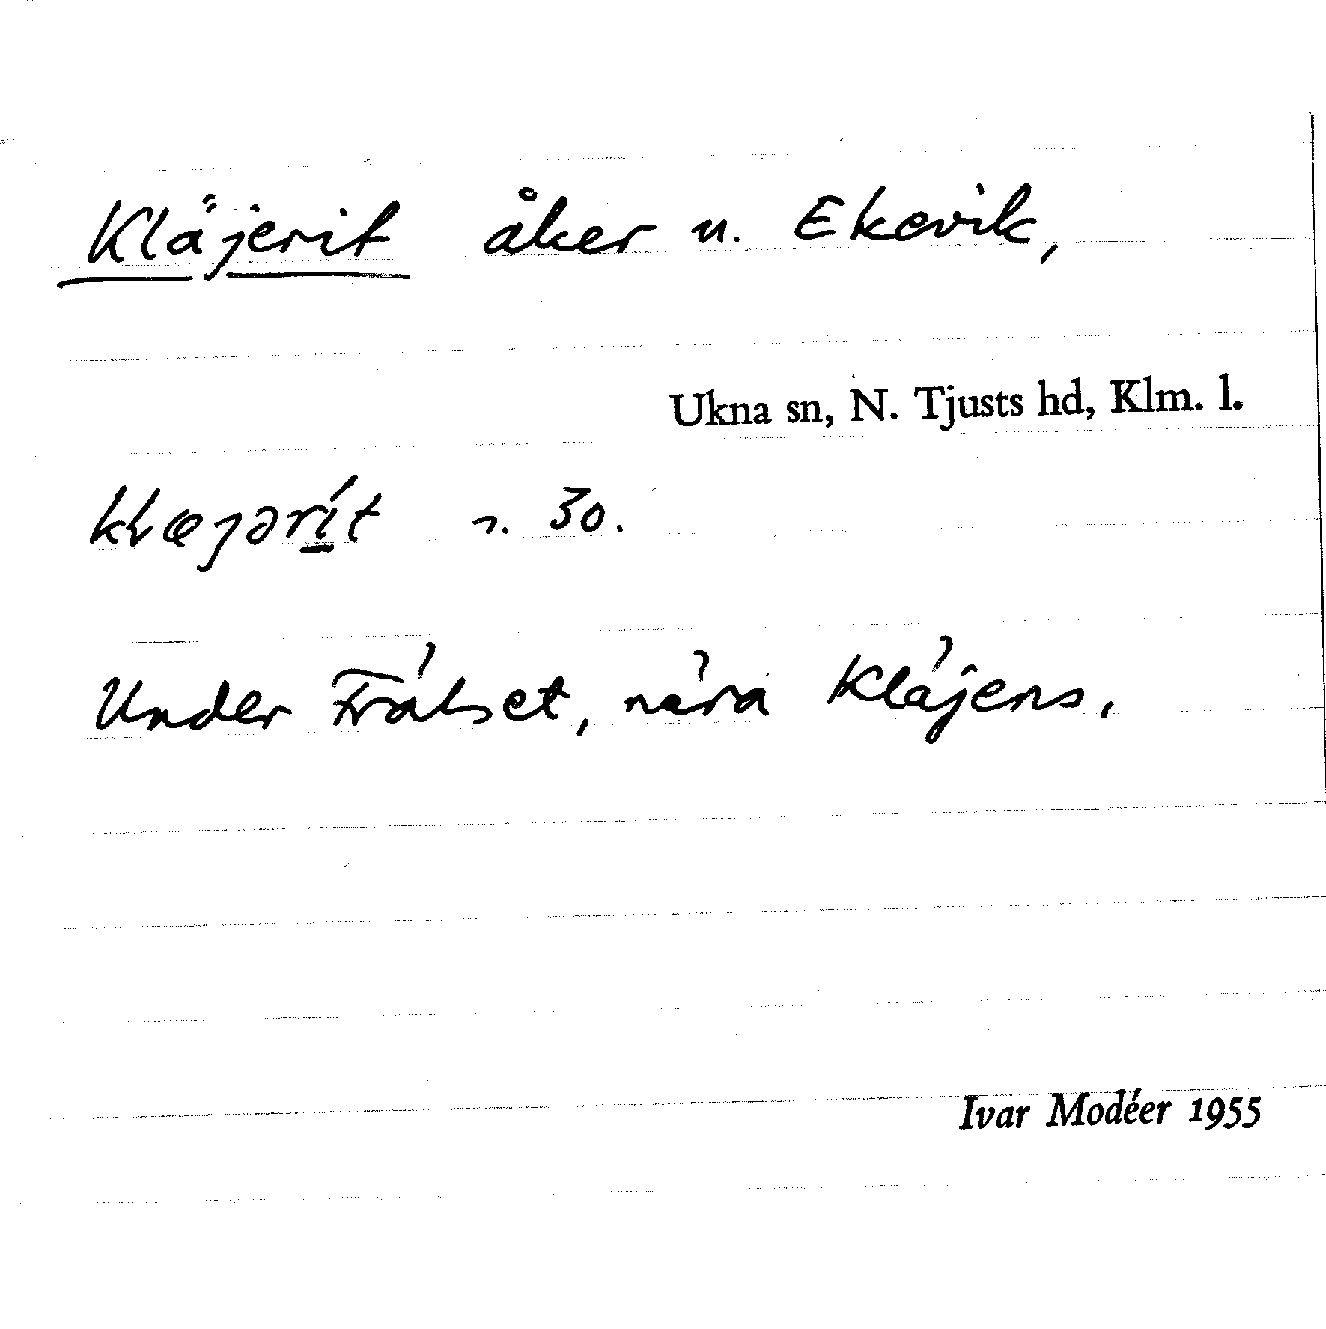 Kläjerit åker u. Ekevik,
Ukna sn, N. Tjusts hd, Klm. l.
klæjərít n. 30.
Under Frälset, nära Kläjens.
Ivar Modéer 1955